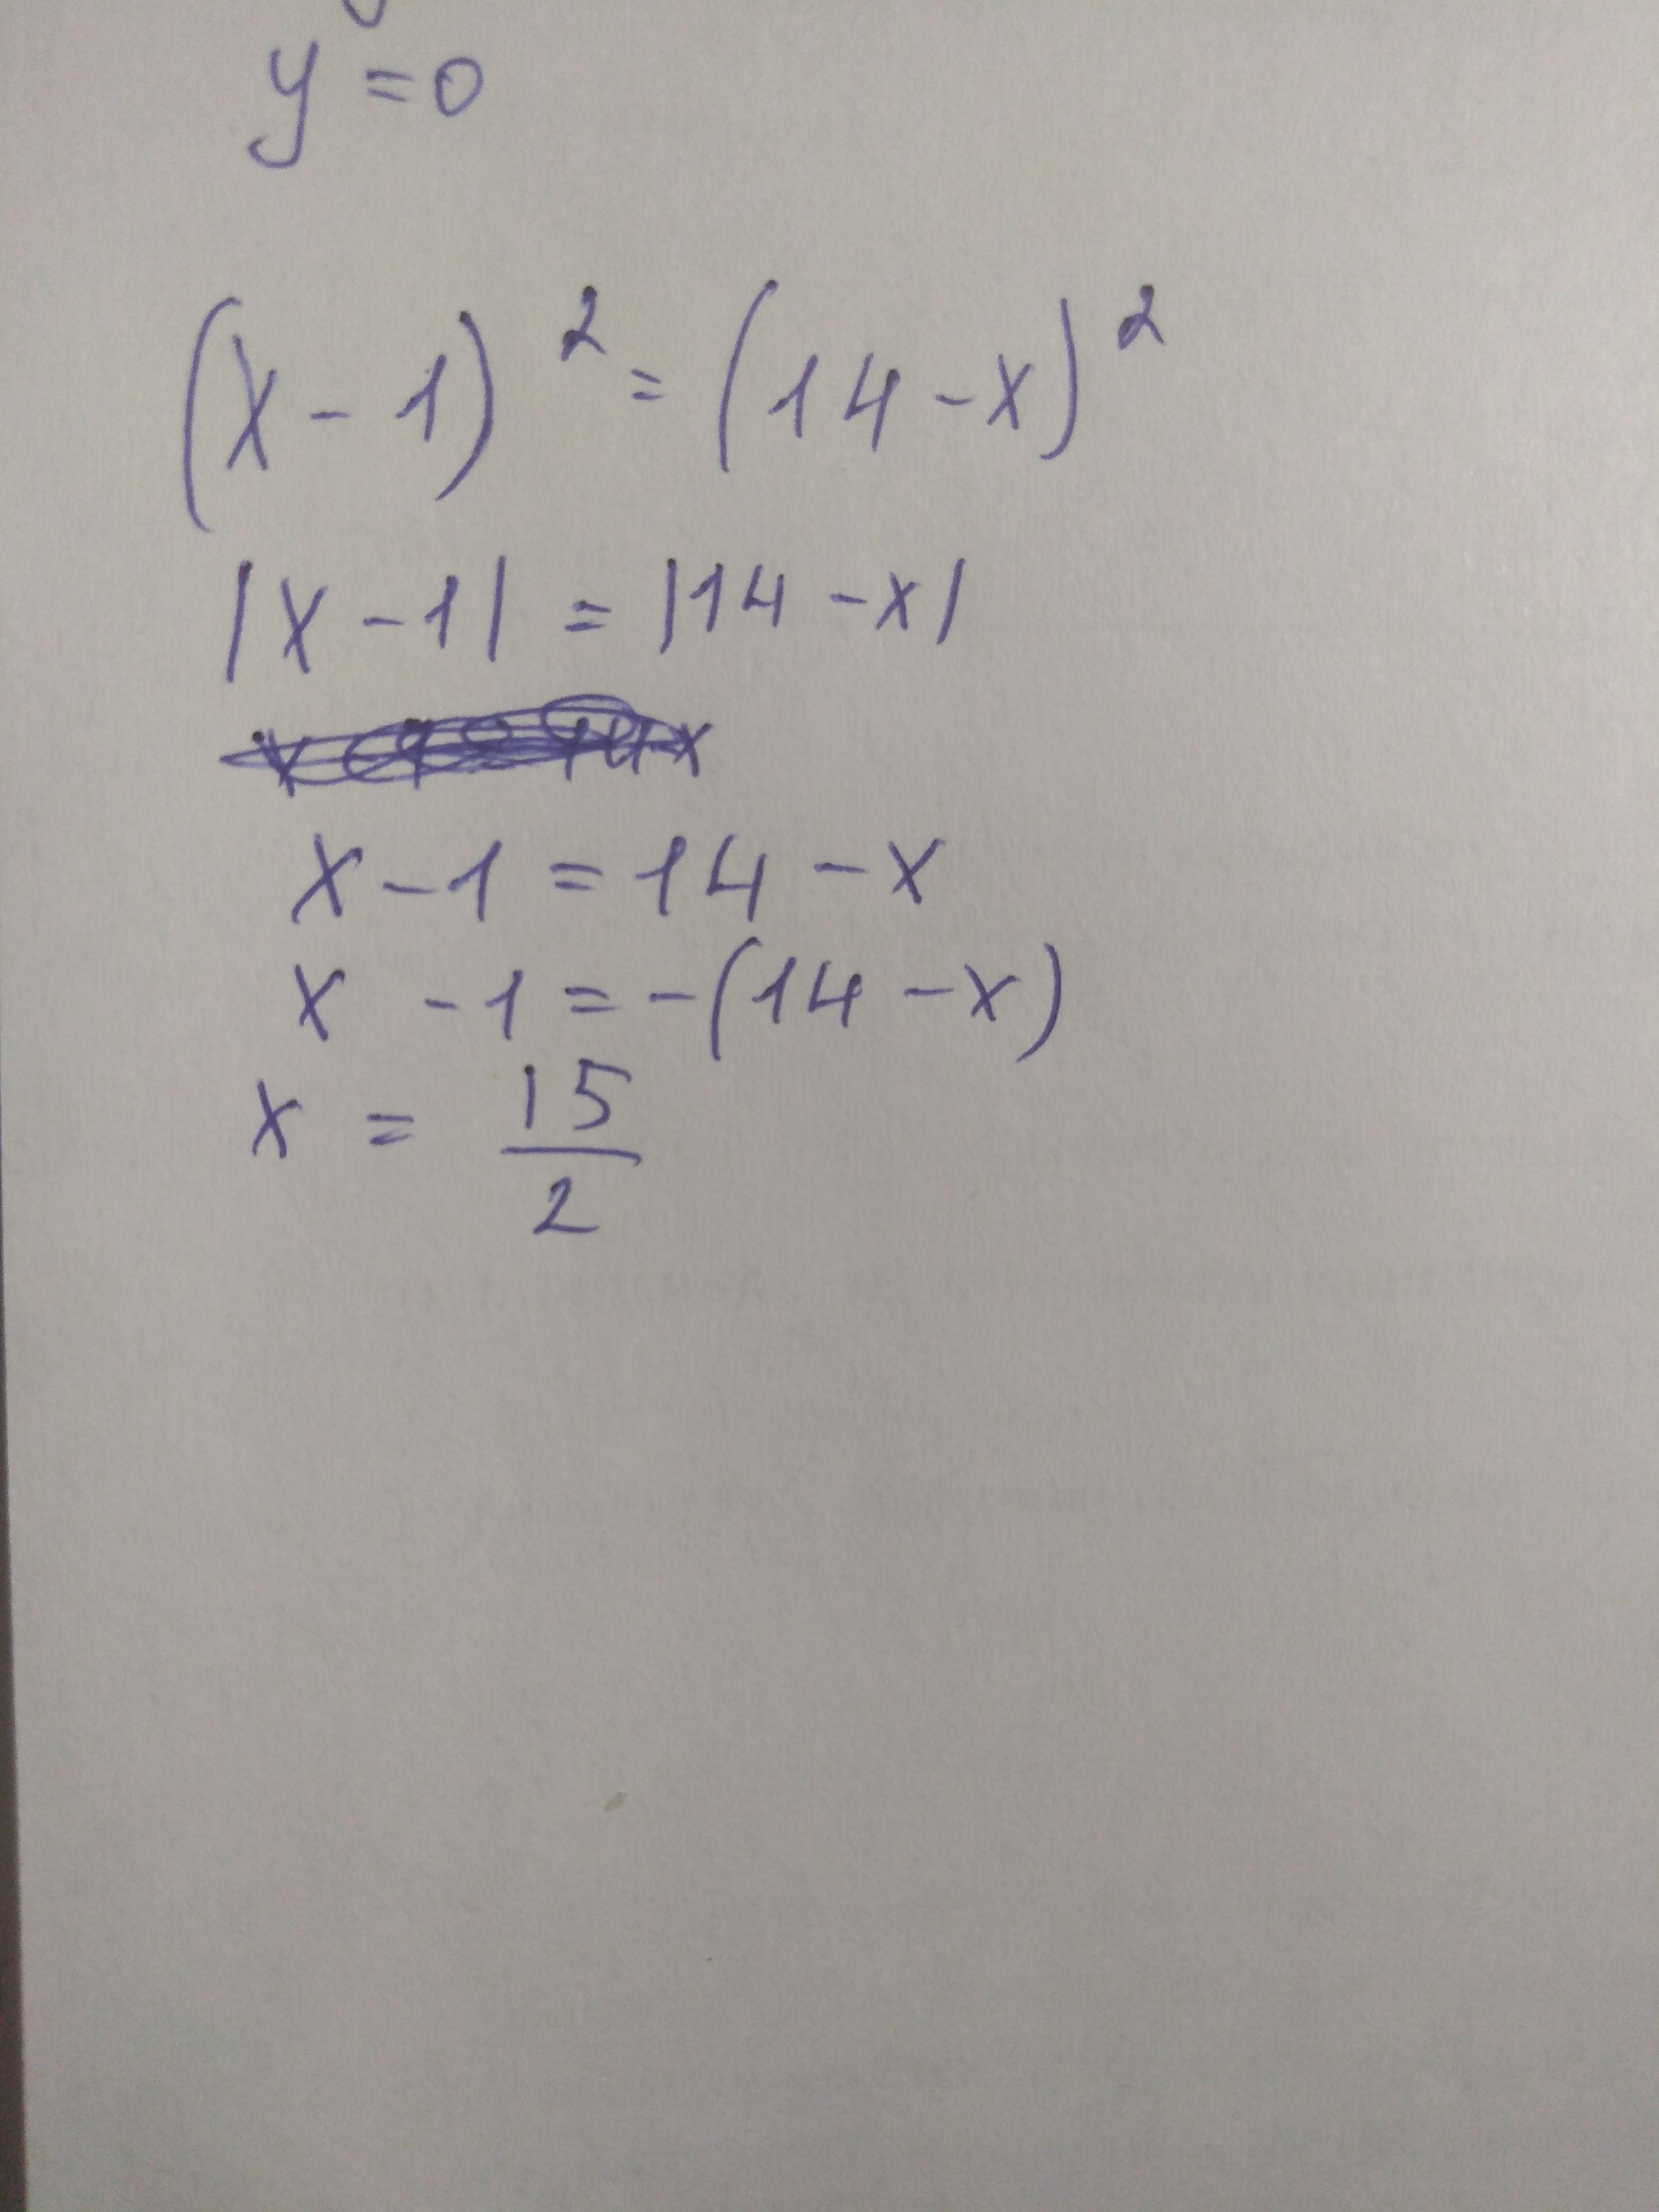 y = 0
(x - 1)² = (14 - x)²
|x - 1| = |14 - x|
x - 1 = 14 - x
x - 1 = -(14 - x)
x = 15/2